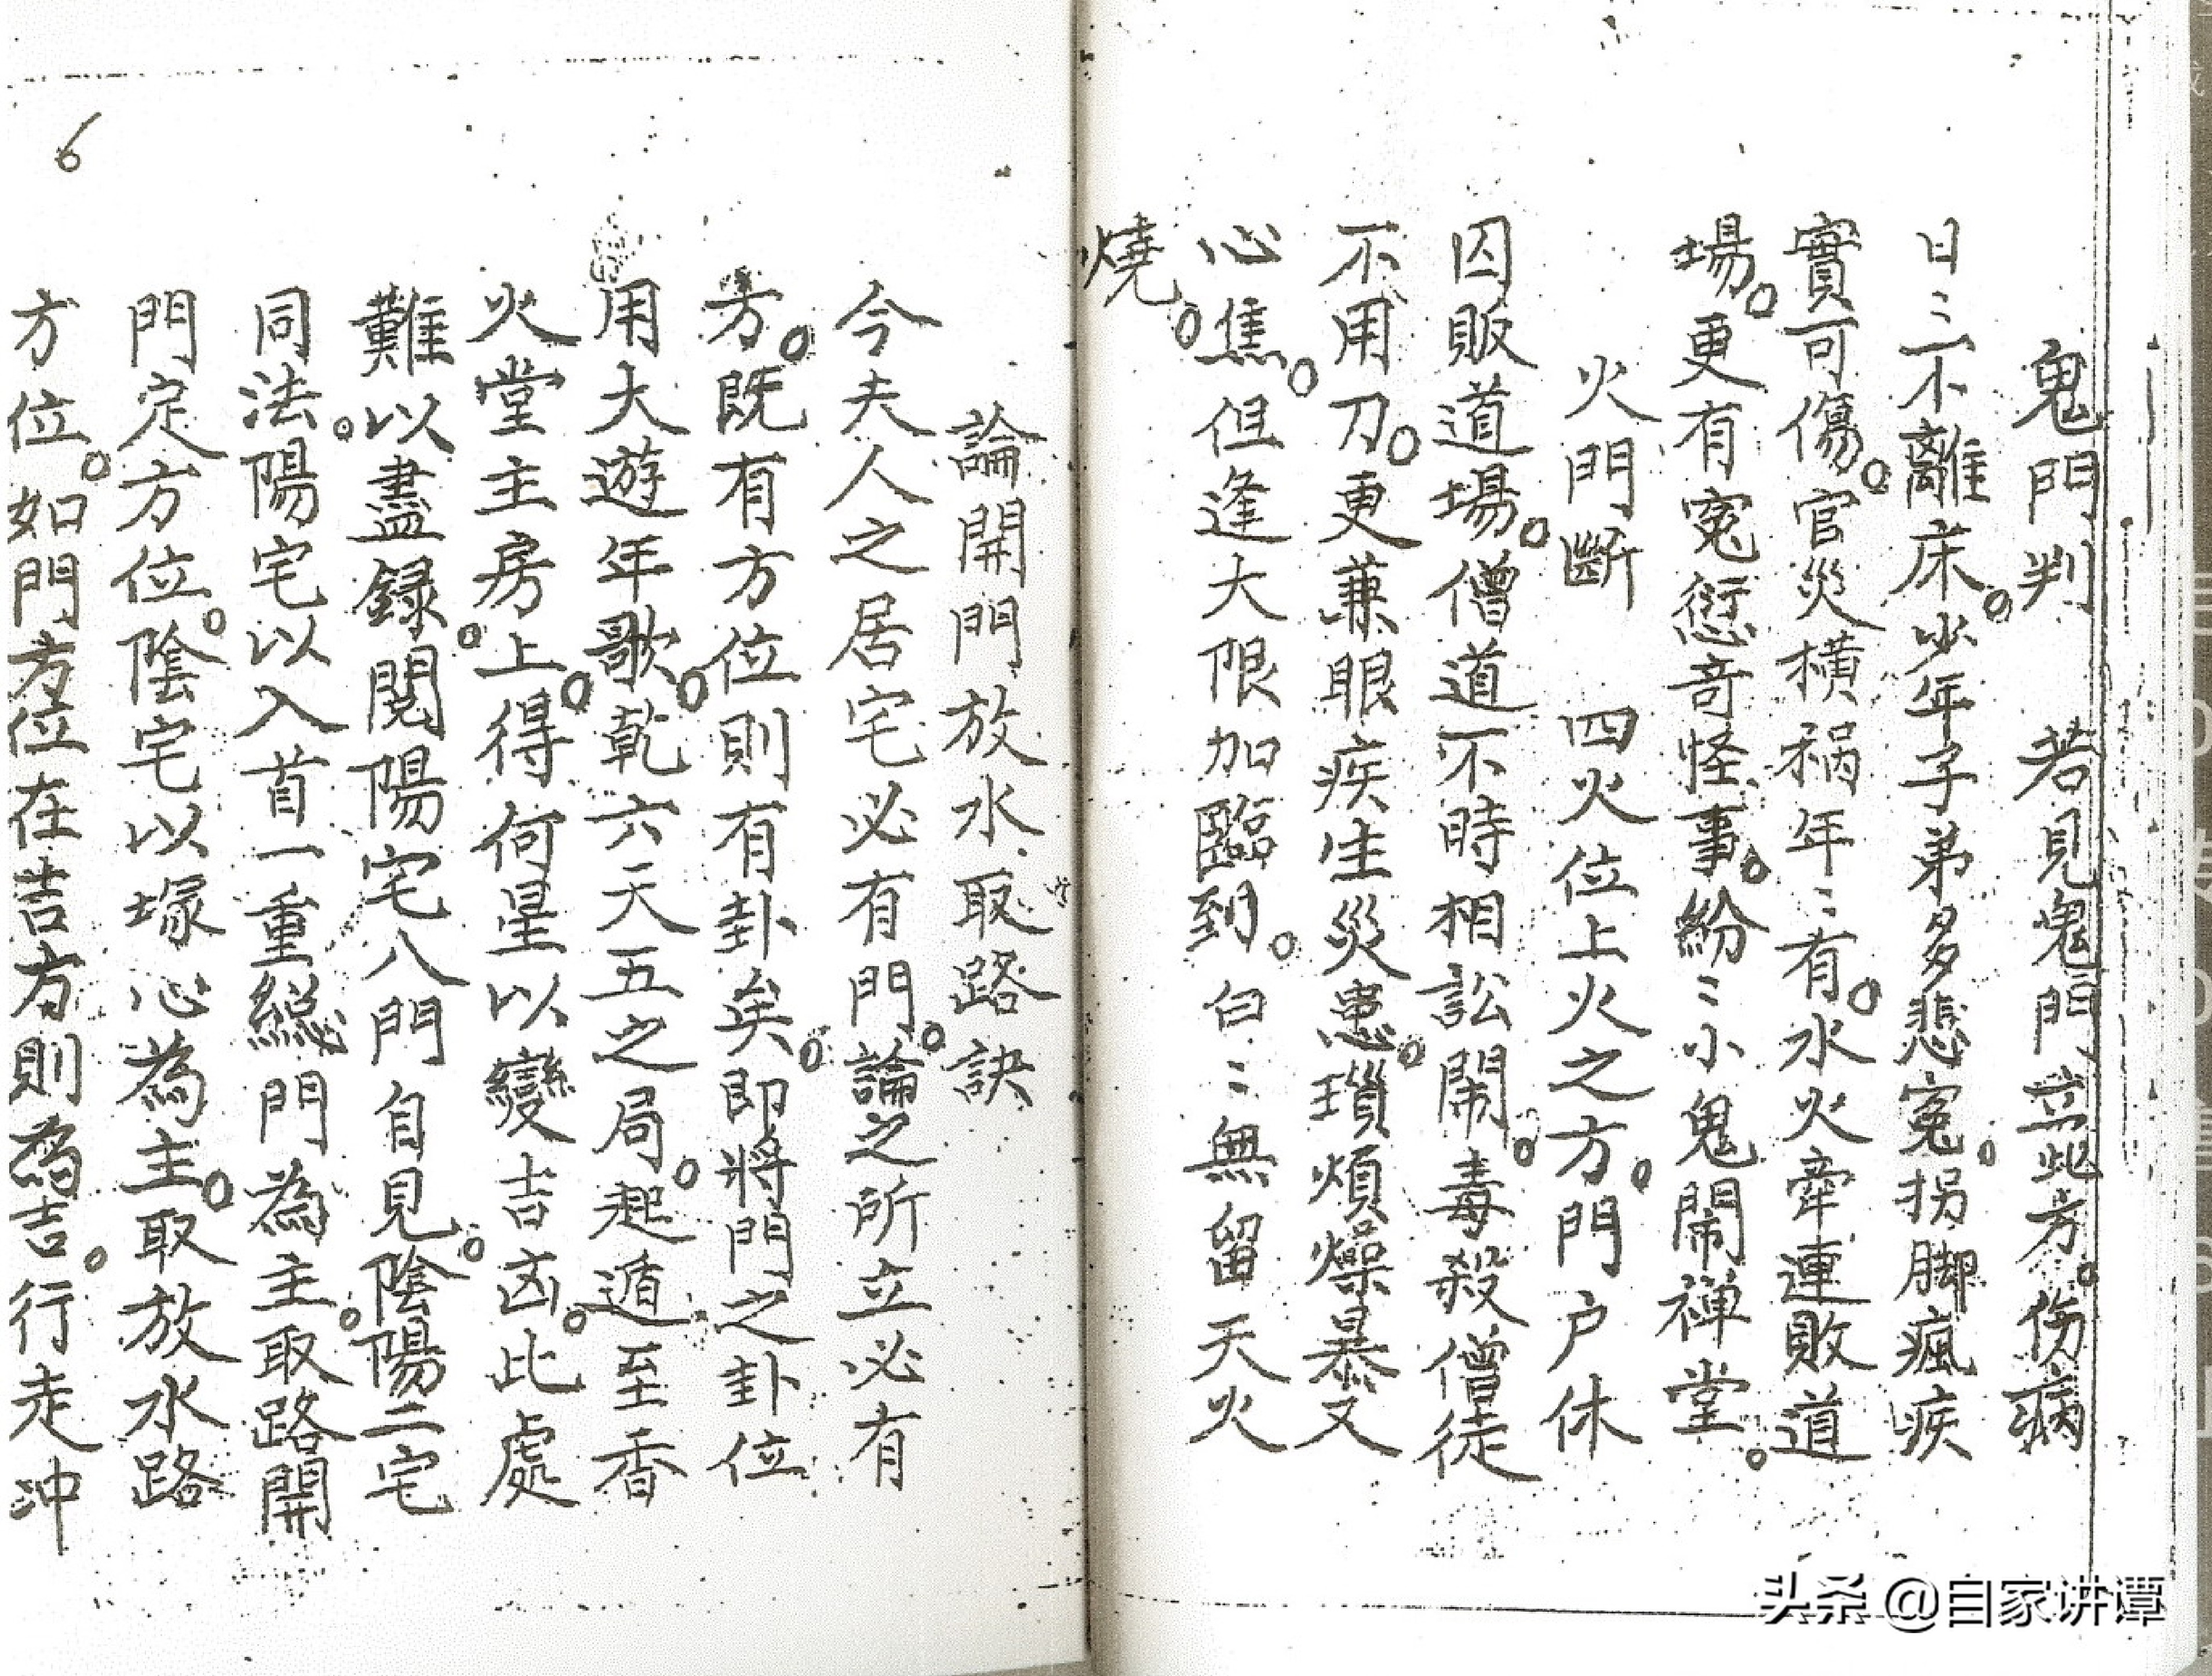 鬼門判　若見鬼門立此方。伤病
日〻不離床。少年子弟多悲寃。拐脚瘋疾
實可傷。官災横祸年〻有。水火牽連敗道
場。更有寃愆奇怪事。紛〻小鬼鬧禅堂。
火門斷　四火位上火之方。門户休
囚販道場。僧道不時相訟鬧。毒殺僧徒
不用刀。更兼眼疾生災患。瑣煩燥暴又
心焦。但逢大限加臨到。白〻無留天火
燒。
論開門放水取路訣
今夫人之居宅必有門。論之所立必有
方。既有方位則有卦矣。即將門之卦位
用大遊年歌。乾六天五之局。起遁至香
火堂主房上。得何星以變吉凶。此處
難以盡録。閱陽宅八門自見。陰陽二宅
同法。陽宅以入首一重総門為主。取路開
門定方位。陰宅以塚心為主。取放水路
方位。如門方位在吉方則為吉。行走冲
6
头条 @自家讲谭